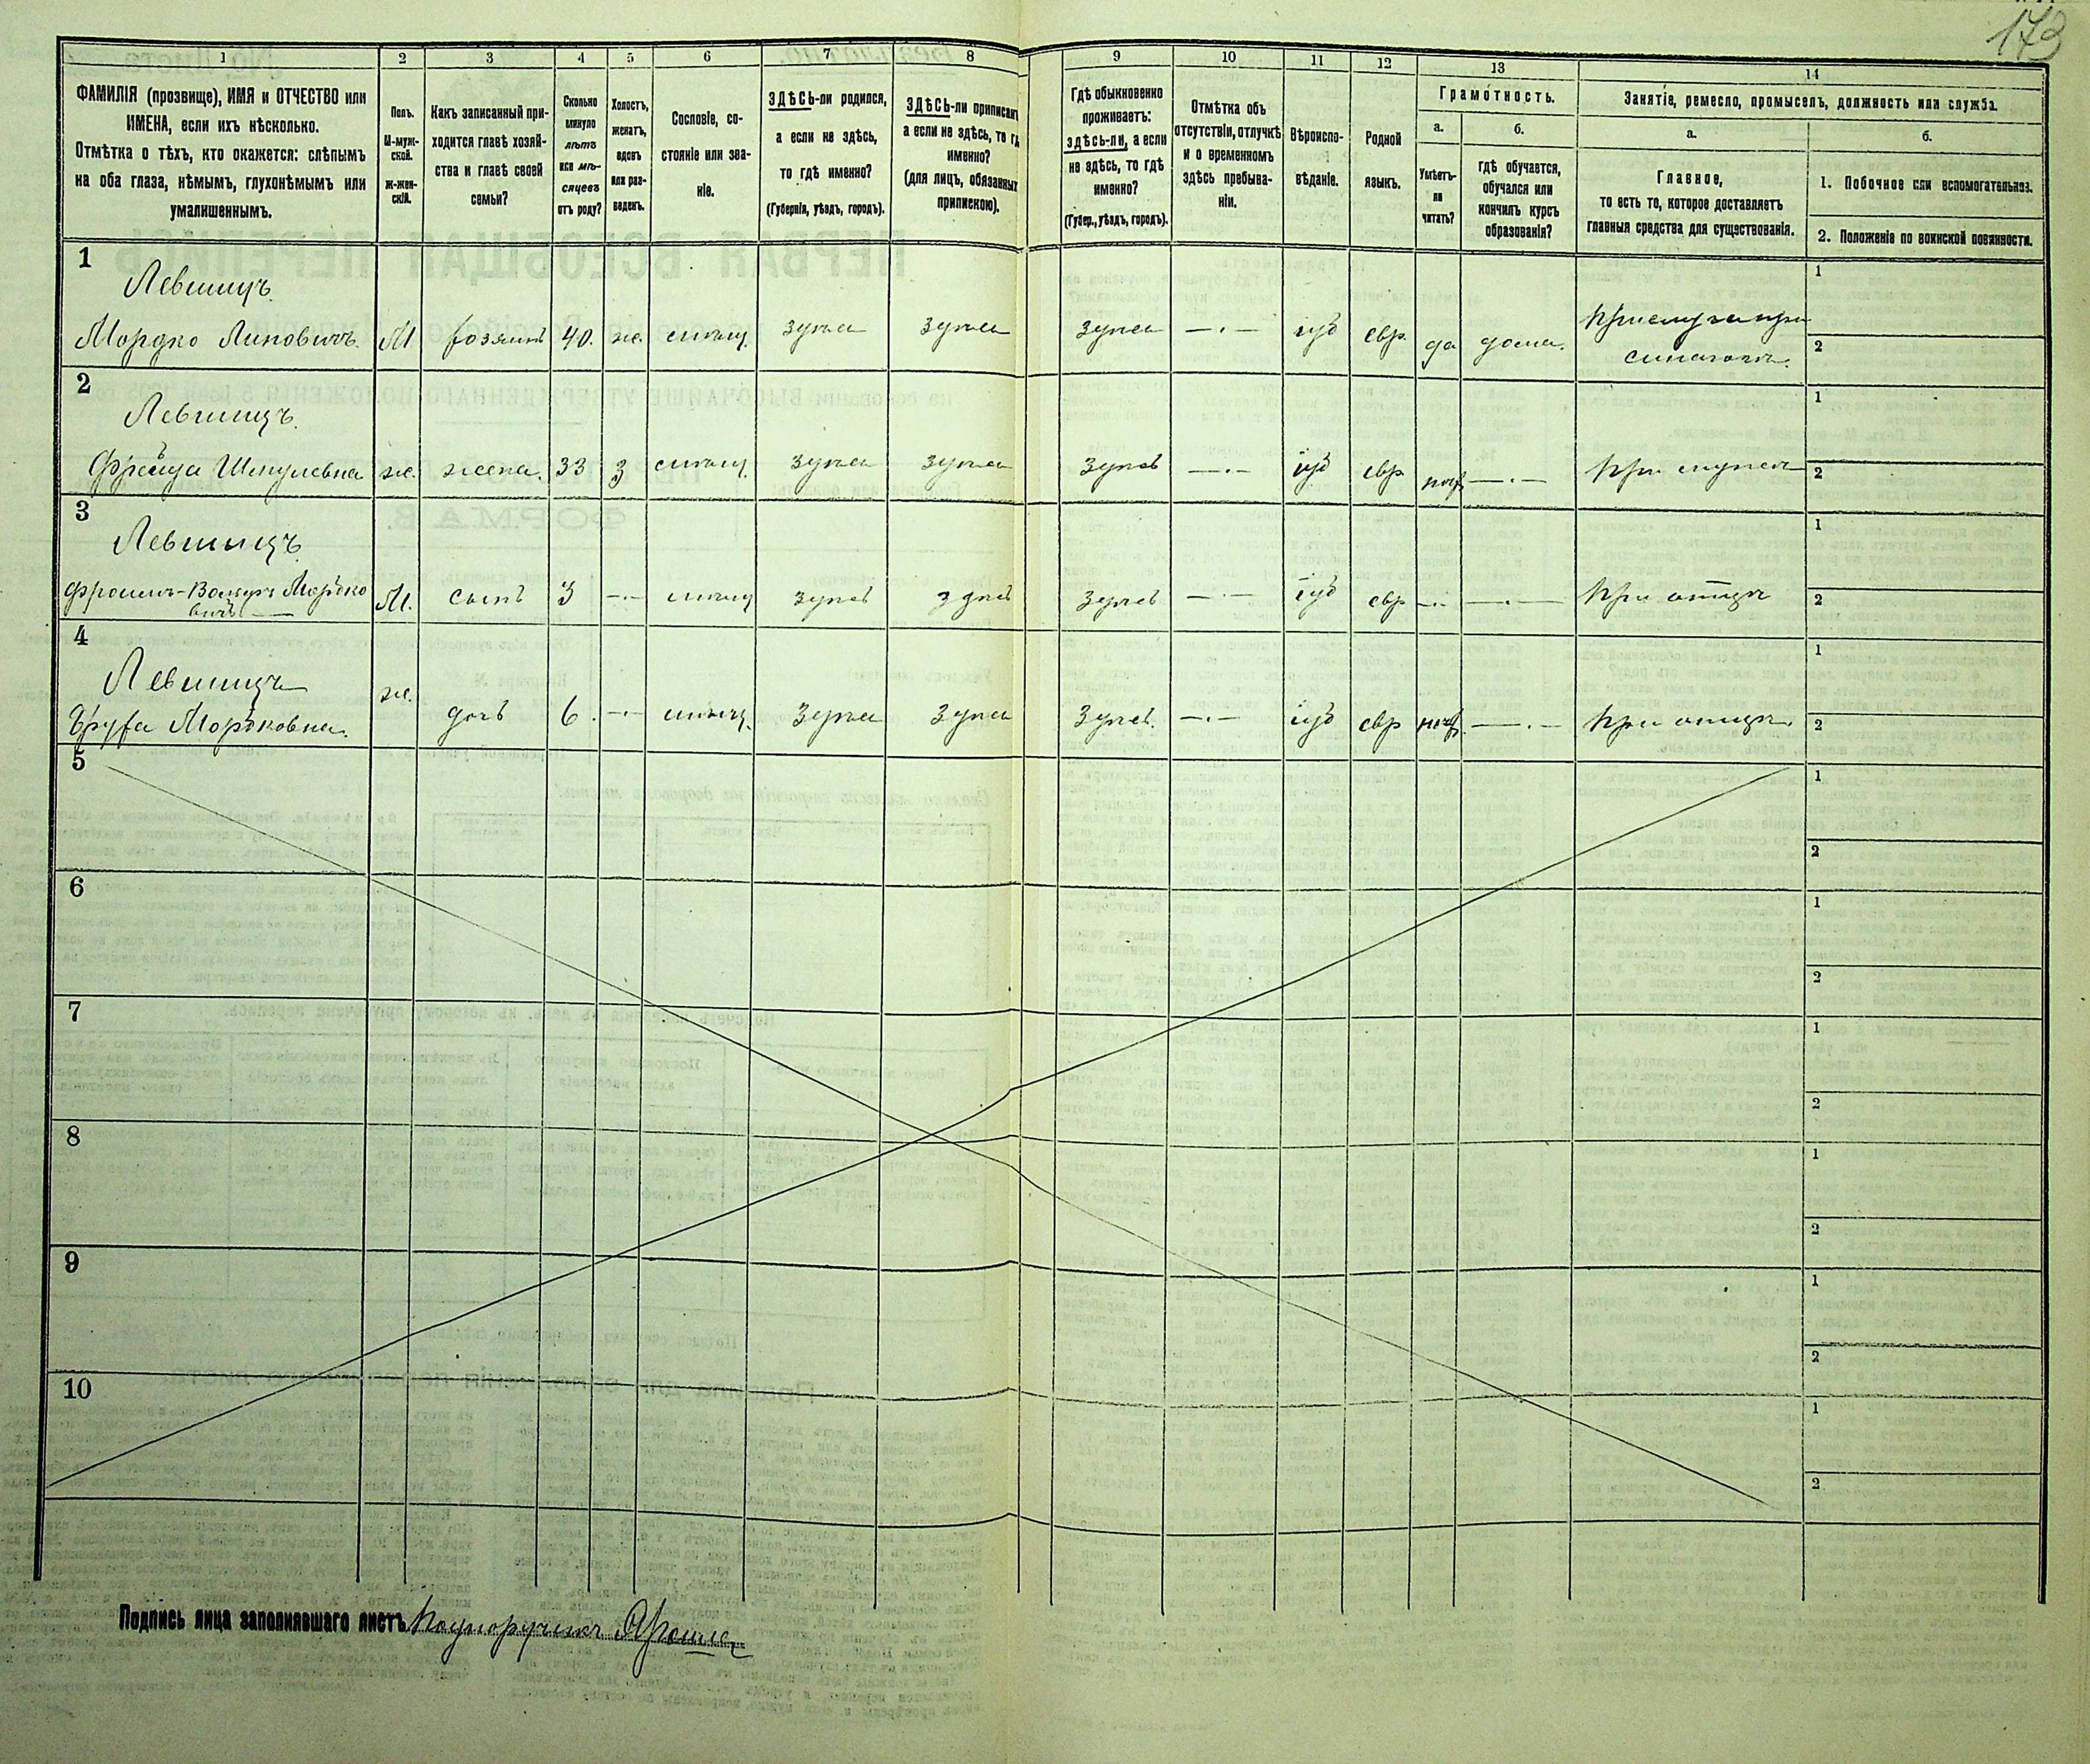 173
1
2
3
4
5
6
7
8
9
10
11
12
13
14
ФАМИЛІЯ (прозвище), ИМЯ и ОТЧЕСТВО или
ИМЕНА, если ихъ нѣсколько.
Отмѣтка о тѣхъ, кто окажется: слѣпымъ
на оба глаза, нѣмымъ, глухонѣмымъ или
умалишеннымъ.
Полъ.
М-муж-
ской.
ж-жен-
скій.
Какъ записанный при-
ходится главѣ хозяй-
ства и главѣ своей
семьи?
Сколько
минуло
лѣтъ
или мѣ-
сяцевъ
отъ роду?
Холостъ,
женатъ,
вдовъ
или раз-
веденъ.
Сословіе, со-
стояніе или зва-
ніе.
ЗДѢСЬ-ли родился,
а если не здѣсь,
то гдѣ именно?
(Губернія, уѣздъ, городъ).
ЗДѢСЬ-ли приписанъ
а если не здѣсь, то гд
именно?
(для лицъ, обязанных
припискою).
Гдѣ обыкновенно
проживаетъ:
здѣсь-ли, а если
не здѣсь, то гдѣ
именно?
(Губер., уѣздъ, городъ).
Отмѣтка объ
отсутствіи, отлучкѣ
и о временномъ
здѣсь пребыва-
ніи.
Вѣроиспо-
вѣданіе.
Родной
языкъ.
Грамотность.
а.
Умѣетъ-
ли
читать?
б.
гдѣ обучается,
обучался или
кончилъ курсъ
образованія?
Занятіе, ремесло, промыселъ, должность или служба.
а.
Главное,
то есть то, которое доставляетъ
главныя средства для существованія.
б.
1. Побочное или вспомогательное.
2. Положеніе по воинской повинности.
1
Левшицъ.
Мордко Липовичъ. М хозяинъ 40. же. здѣсь здѣсь здѣсь —·— іуд евр. да дома.
Прислуга при
синагогѣ.
1
2
2
Левшицъ.
Фрейда Шмулевна же. жена. 33 З здѣсь здѣсь здѣсь —·— іуд евр —·— При мужѣ
1
2
3
Левшицъ
Мордко
вичъ М. сынъ 3 —·— здѣсь здѣсь здѣсь —·— іуд евр —·— —·— При отцѣ
1
2
4
Левшицъ
Мордковна. же. дочь 6. —·— здѣсь здѣсь здѣсь. —·— іуд евр —·— При отцѣ.
1
2
5
1
2
6
1
2
7
1
2
8
1
2
9
1
2
10
1
2
Подпись лица заполнявшаго листъ Подпоручикъ